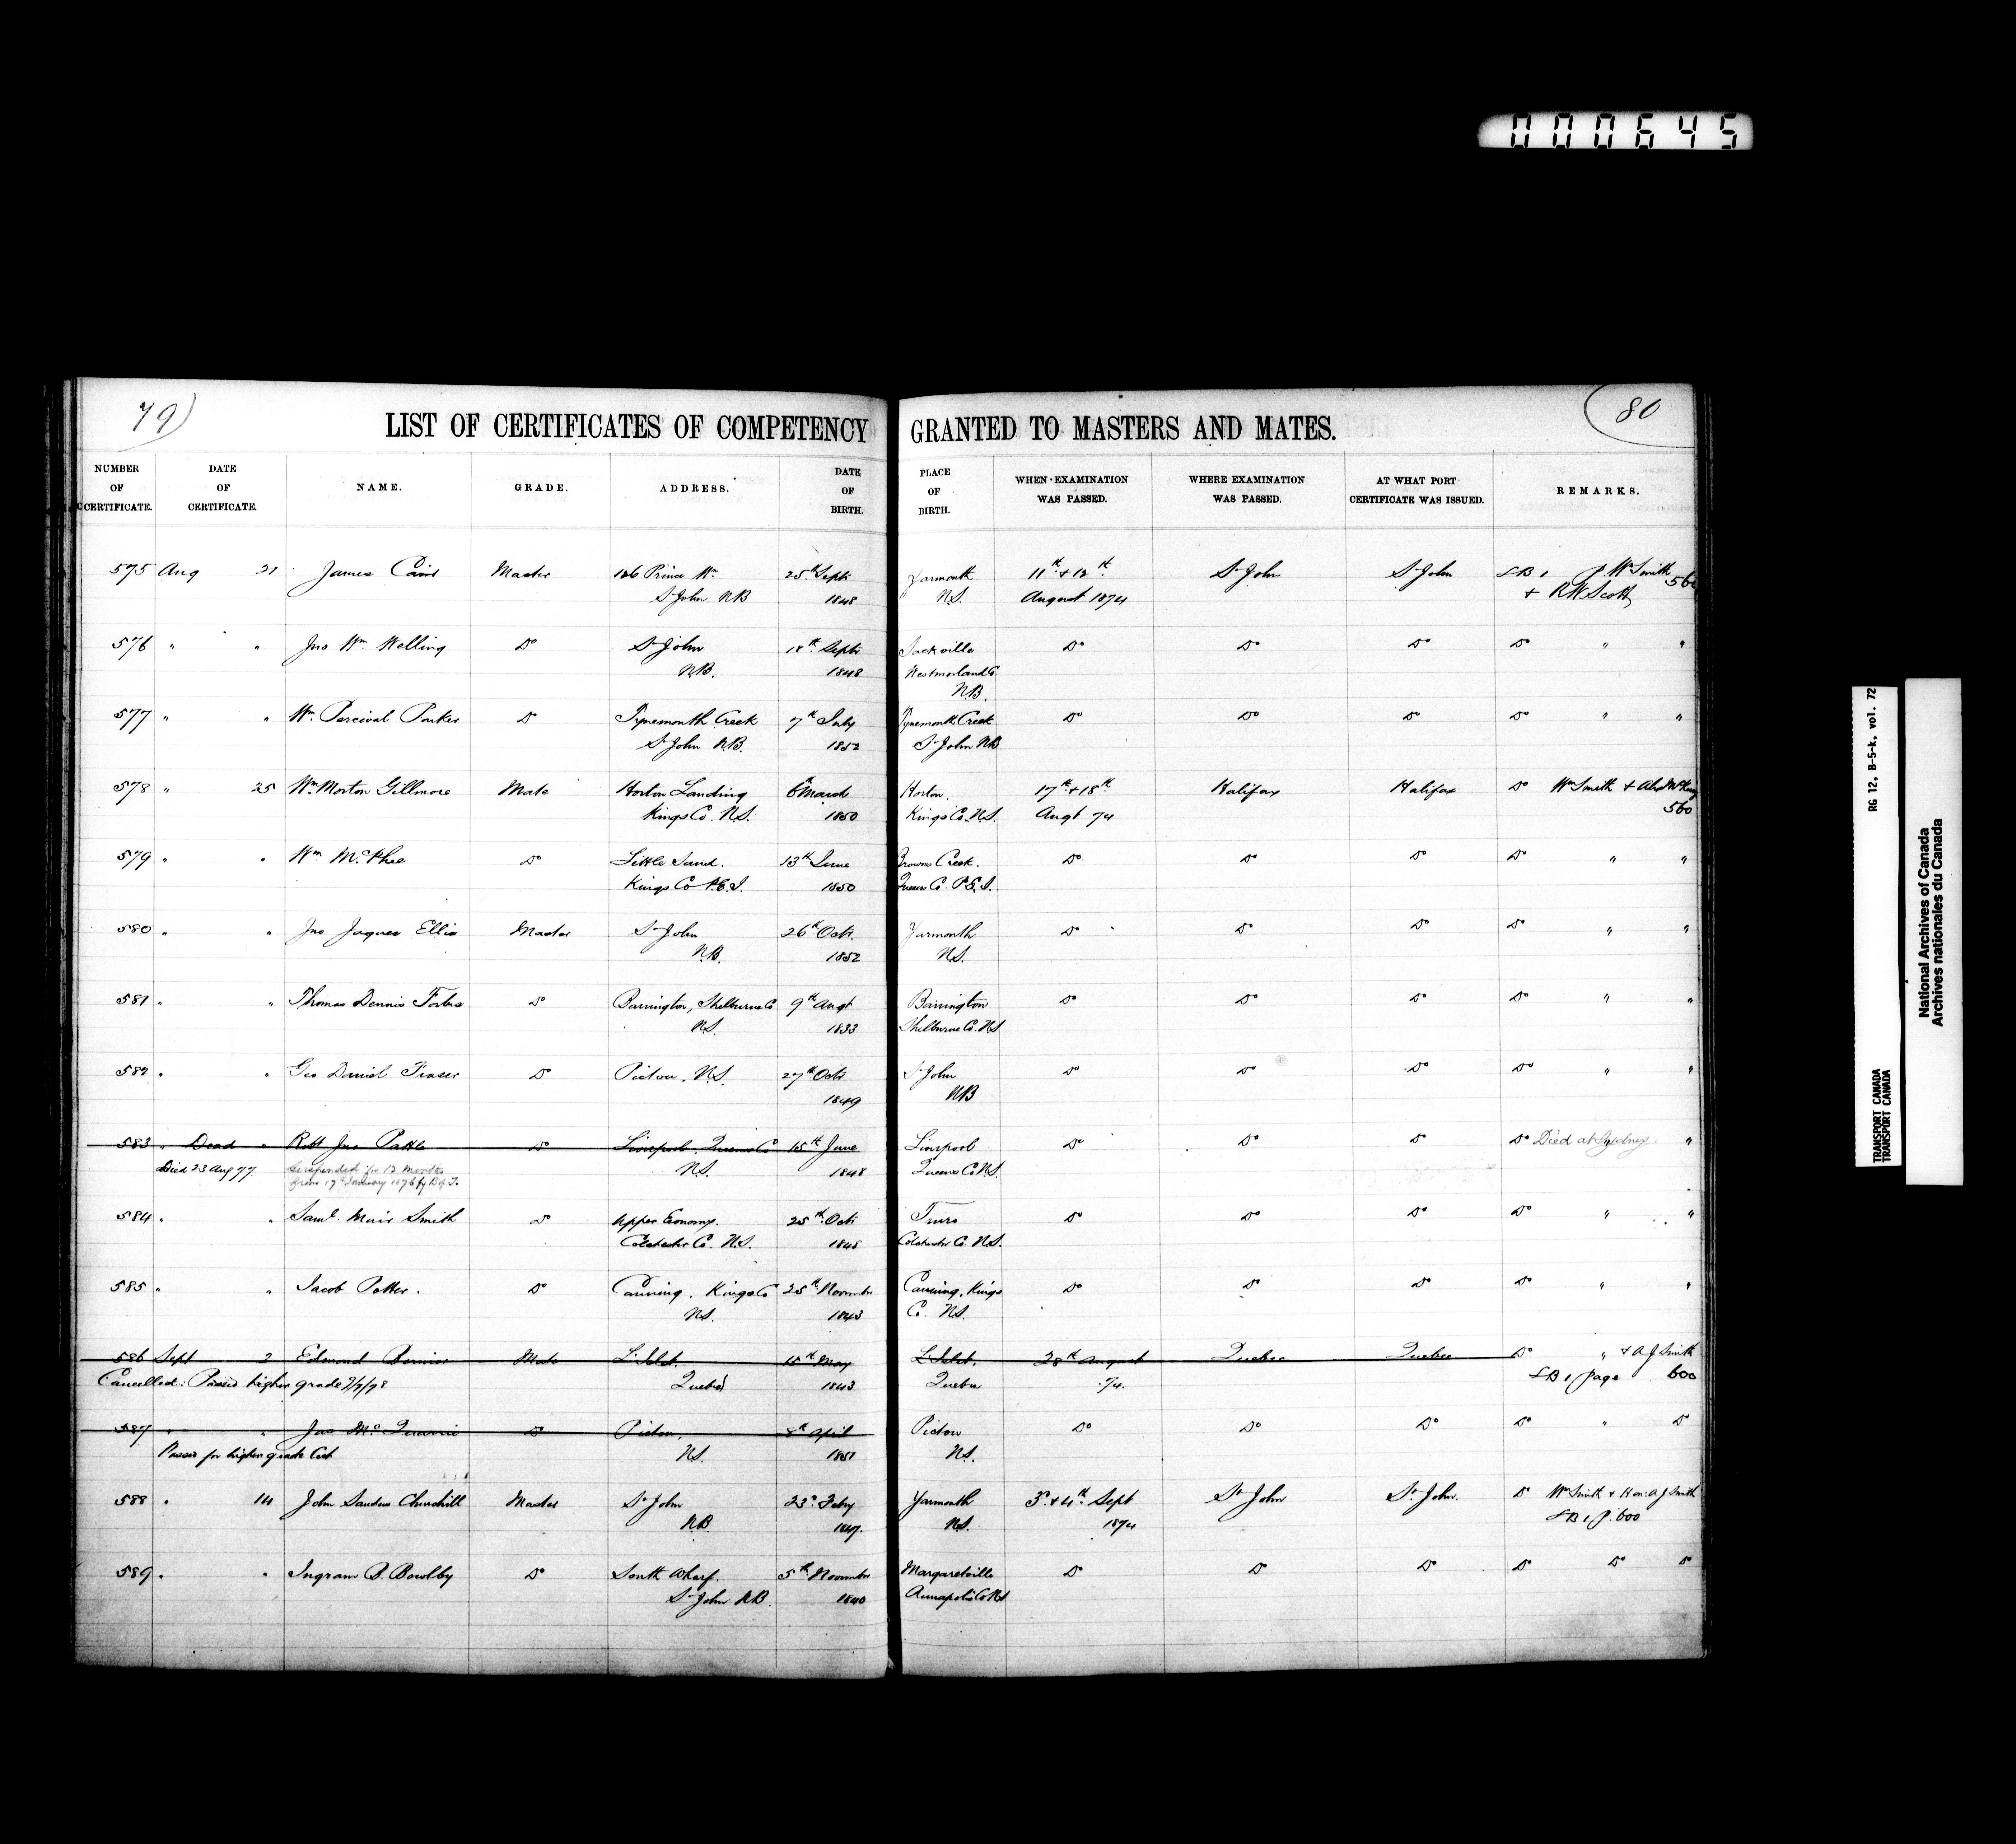 000645
79)
80
LIST OF CERTIFICATES OF COMPETENCY GRANTED TO MASTERS AND MATES.
NUMBER OF CERTIFICATE. DATE OF CERTIFICATE. NAME. GRADE. ADDRESS. DATE OF BIRTH. PLACE OF BIRTH. WHEN EXAMINATION WAS PASSED. WHERE EXAMINATION WAS PASSED. AT WHAT PORT CERTIFICATE WAS ISSUED. REMARKS.
575 Aug 21 James Master 126 Prince Wm 25th Septr Yarmouth 11th & 12th St John St John LB 1 p Wm Smith 560
St John NB 1848 N.S. August 1874 + RW Scott
576 " " Jno Wm Welling Do St John 18th Septr Sackville Do Do Do Do " "
NB. 1848 Westmorland Co.
NB.
577 " " Wm Percival Parker Do Tynemouth Creek 7th July Tynemouth Creek Do Do Do Do " "
St John NB. 1852 St John NB
578 " 25 Wm Morton Gillmore Mate Horton Landing 6 March Horton. 17th & 18th Halifax Halifax Do Wm Smith &
Kings Co. N.S. 1850 Kings Co. N.S. Augt 74 560
579 " " Wm McPhee Do Little Sand. 13th June Browns Creek. Do Do Do Do " "
Kings Co P.E.I. 1850 Queens Co. P.E.I.
580 " " Jno Jaques Ellis Master St John 26th Octr. Yarmouth Do Do Do Do " "
N.B. 1852 N.S.
581 " " Thomas Dennis Forbes Do Barrington, Shelburne Co 9th Augt Barrington Do Do Do Do " "
N.S. 1833 Shelburne Co. N.S
582 " " Geo Daniel Fraser Do Pictou, N.S. 27th Octr St John Do Do Do Do " "
1849 NB
583 " Dead " Robt Jno Do Liverpool, Queens Co 15th June Liverpool Do Do Do Do Died at Sydney. "
Died 23 Aug 77 Suspended for 12 Months N.S. 1848 Queens Co N.S.
from 17th January 1876 by B of T.
584 " " Saml. Muir Smith Do Upper Economy. 25th Octr Truro Do Do Do Do " "
Colchester Co. N.S. 1848 Colchester Co. N.S.
585 " " Jacob Potter. Do Canning, Kings Co 25th Novembr Canning, Kings Do Do Do Do " "
N.S. 1843 Co. N.S.
586 Sept 2 Edmond Bernier Mate L'Islet. 15th May L'Islet. 28th August Quebec Quebec Do " & A J Smith
Cancelled: Passed higher grade 7/9/78 Quebec 1843 Quebec 74. LB 1, page 600
587 " " Jno Do Pictou, 8th April Pictou Do Do Do Do " Do
Passed for higher grade Cert N.S. 1851 N.S.
588 " 14 John Sanders Churchill Master St John 23d Feby Yarmouth 3d & 4th Sept St John St John. Do Wm Smith & Hon: A J Smith
NB. 1847. N.S. 1874 LB 1, p. 600
589 " " Ingram B. Bowlby Do South Wharf. 5th November Margaretville Do Do Do Do Do Do
St John NB. 1840 Annapolis Co NS
RG 12, B-5-k, vol. 72
TRANSPORT CANADA
TRANSPORT CANADA
National Archives of Canada
Archives nationales du Canada